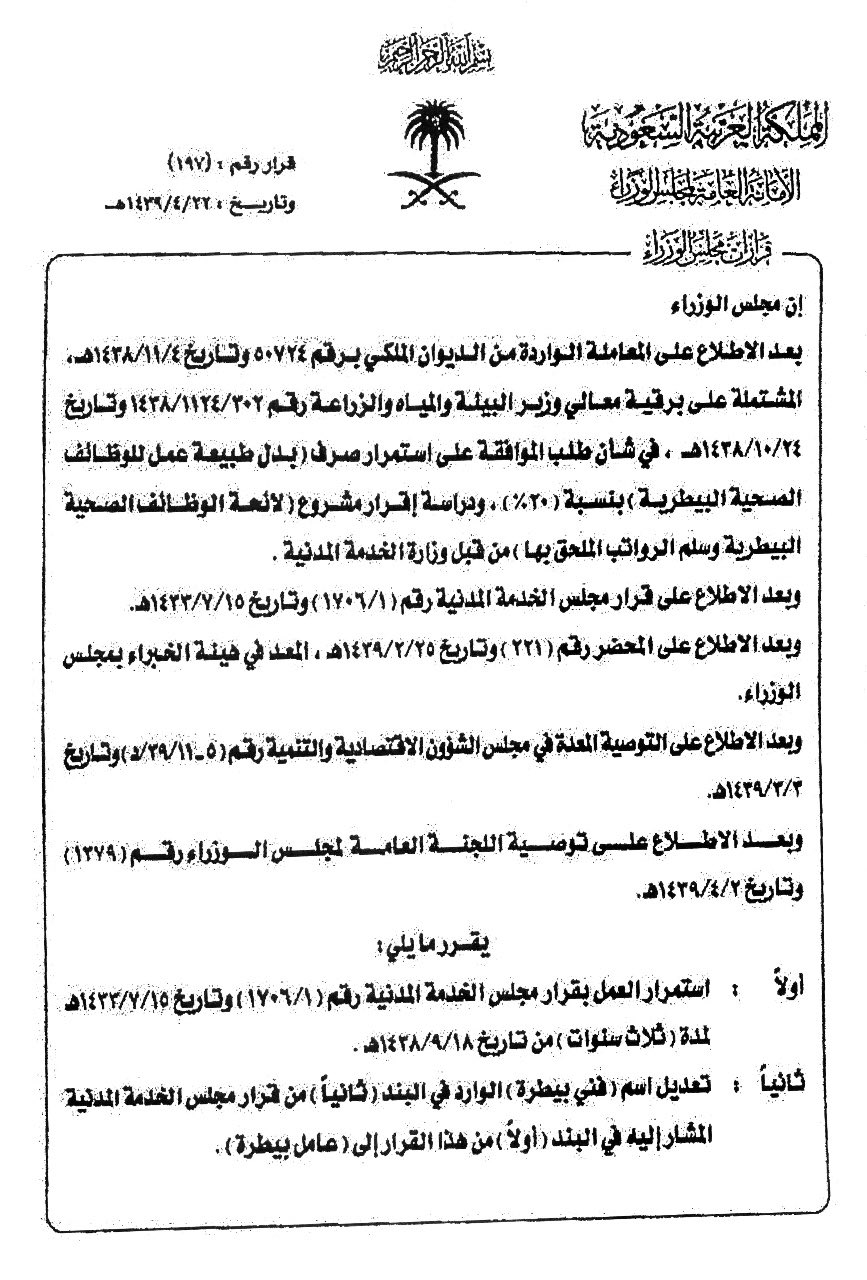 بسم الله الرحمن الرحيم
المملكة العربية السعودية
الأمانة العامة لمجلس الوزراء
قرار رقم : (١٩٧)
وتاريـخ : ١٤٣٩/٤/٢٢هـ
قرارات مجلس الوزراء
إن مجلس الوزراء
بعد الاطلاع على المعاملة الواردة من الديوان الملكي برقم ٥٠٧٢٤ وتاريخ ١٤٣٨/١١/٤هـ،
المشتملة على برقية معالي وزير البيئة والمياه والزراعة رقم ١٤٣٨/١١٢٤/٣٠٢ وتاريخ
١٤٣٨/١٠/٢٤هـ ، في شأن طلب الموافقة على استمرار صرف (بدل طبيعة عمل للوظائف
الصحية البيطرية) بنسبة (٢٠٪) ، ودراسة إقرار مشروع (لائحة الوظائف الصحية
البيطرية وسلم الرواتب الملحق بها) من قبل وزارة الخدمة المدنية .
وبعد الاطلاع على قرار مجلس الخدمة المدنية رقم (١٧٠٦/١) وتاريخ ١٤٣٣/٧/١٥هـ.
وبعد الاطلاع على المحضر رقم (٢٢١) وتاريخ ١٤٣٩/٢/٢٥هـ ، المعد في هيئة الخبراء بمجلس
الوزراء.
وبعد الاطلاع على التوصية المعدة في مجلس الشؤون الاقتصادية والتنمية رقم (٥-٣٩/١١/د) وتاريخ
١٤٣٩/٣/٣هـ.
وبعـد الاطـلاع علـى توصـية اللجنـة العامـة لمجلـس الـوزراء رقـم (١٣٧٩)
وتاريخ ١٤٣٩/٤/٢هـ.
يقـرر ما يلي :
أولاً : استمرار العمل بقرار مجلس الخدمة المدنية رقم (١٧٠٦/١) وتاريخ ١٤٣٣/٧/١٥هـ
لمدة (ثلاث سنوات) من تاريخ ١٤٣٨/٩/١٨هـ .
ثانياً : تعديل اسم (فني بيطرة) الوارد في البند (ثانياً) من قرار مجلس الخدمة المدنية
المشار إليه في البند (أولاً) من هذا القرار إلى (عامل بيطرة) .